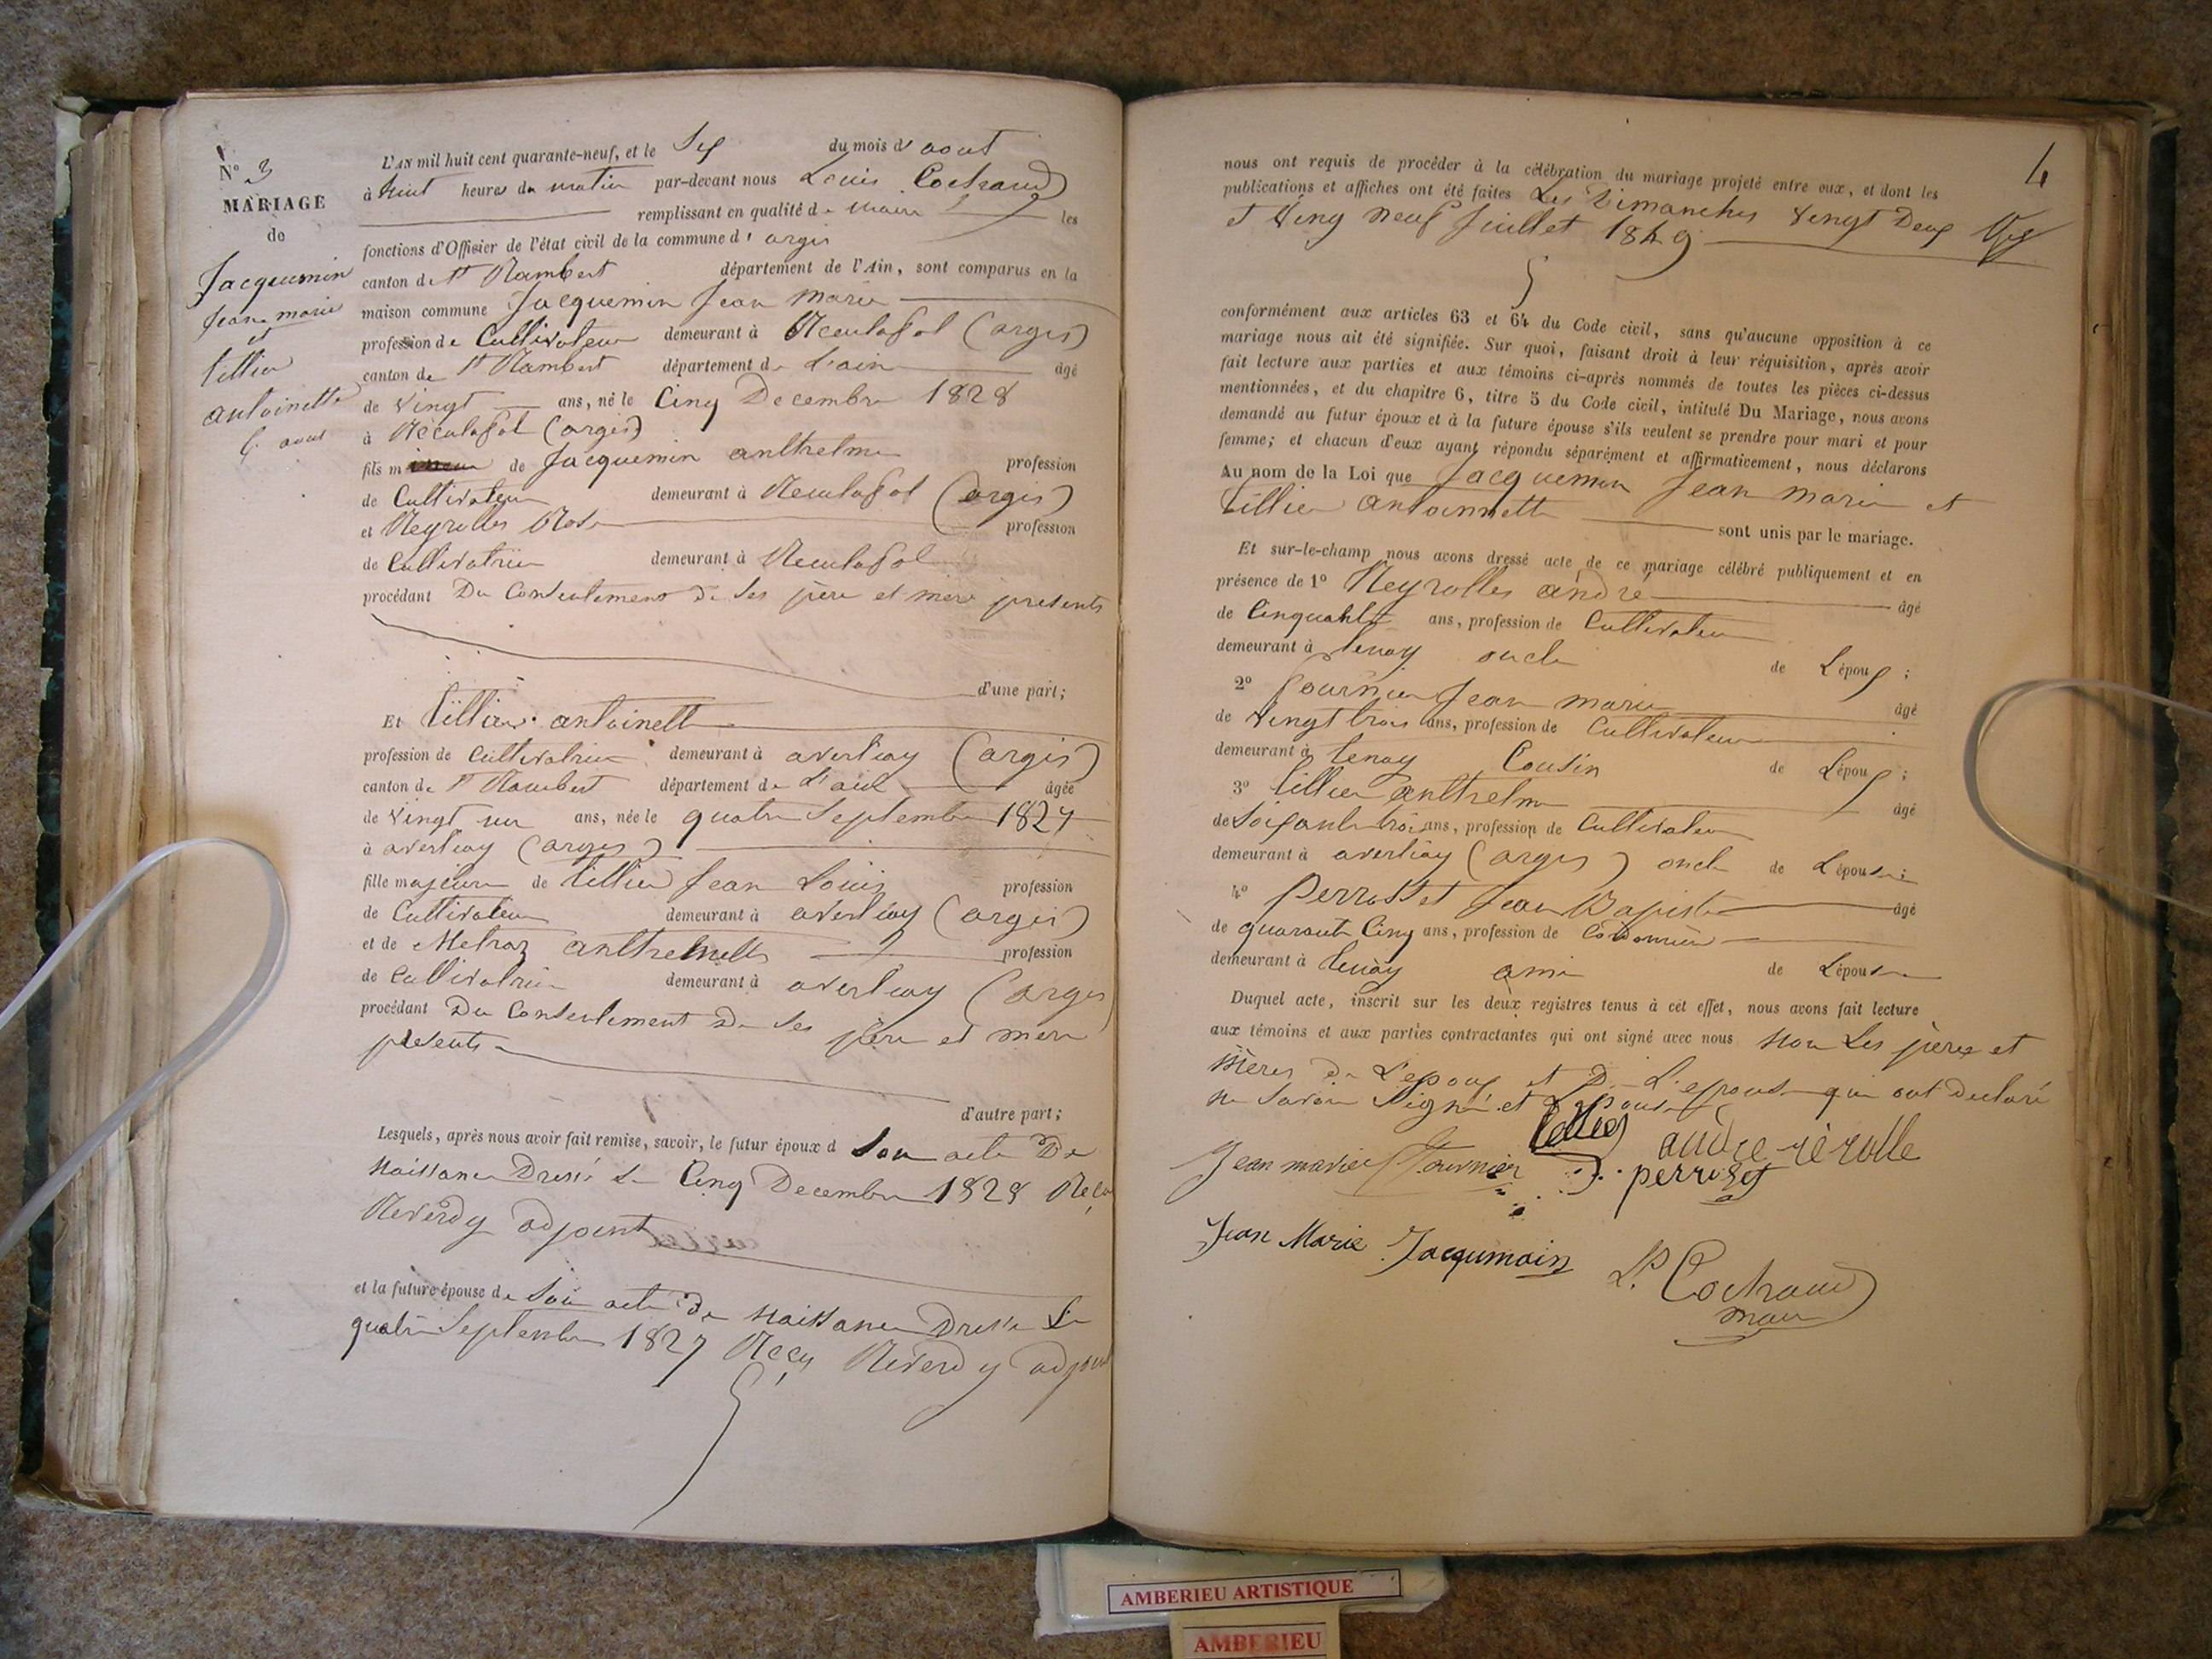 N° 3
MARIAGE
de
Jacquemin
Jean marie
et
tillier
antoinette
6 aout
L'AN mil huit cent quarante-neuf, et le Six du mois d'aout
à huit heures du matin par-devant nous Louis Cochaud
remplissant en qualité de maire les
fonctions d'Officier de l'état civil de la commune d'argis
canton de St Rambert département de l'Ain, sont comparus en la
maison commune Jacquemin Jean marie
profession de Cultivateur demeurant à Reculafol (argis)
canton de St Rambert département de L'ain âgé
de Vingt ans, né le Cinq Decembre 1828
à Reculafol (argis)
fils m de Jacquemin anthelme profession
de Cultivateur demeurant à Reculafol (argis)
et Reyrolles Rose profession
de Cultivatrice demeurant à Reculafol
procédant Du Consentement de Ses père et mère présents
d'une part;
Et tillier antoinette
profession de cultivatrice demeurant à averliay (argis)
canton de St Rambert département de L'ain âgée
de vingt un ans, née le quatre Septembre 1827
à averliay (argis)
fille majeure de tillier Jean Louis profession
de Cultivateur demeurant à averliay (argis)
et de Metraz anthelmette profession
de Cultivatrice demeurant à averliay (argis
procédant Du Consentement De Ses père et mère
présents
d'autre part;
Lesquels, après nous avoir fait remise, savoir, le futur époux d Son acte De
Naissance Dressé Le Cinq Decembre 1828 Reçu
Reverdy adjoint
et la future épouse de Son acte De Naissance Dressé Le
quatre Septembre 1827 Reçu Reverdy adjoint
4
nous ont requis de procéder à la célébration du mariage projeté entre eux, et dont les
publications et affiches ont été faites Les Dimanches Vingt Deux
et Ving neuf Juillet 1849
conformément aux articles 63 et 64 du Code civil, sans qu'aucune opposition à ce
mariage nous ait été signifiée. Sur quoi, faisant droit à leur réquisition, après avoir
fait lecture aux parties et aux témoins ci-après nommés de toutes les pièces ci-dessus
mentionnées, et du chapitre 6, titre 5 du Code civil, intitulé Du Mariage, nous avons
demandé au futur époux et à la future épouse s'ils veulent se prendre pour mari et pour
femme; et chacun d'eux ayant répondu séparément et affirmativement, nous déclarons
Au nom de la Loi que Jacquemin Jean marie et
tillier antoinette sont unis par le mariage.
Et sur-le-champ nous avons dressé acte de ce mariage célébré publiquement et en
présence de 1° Reyrolles andré âgé
de Cinquante ans, profession de Cultivateur
demeurant à tenay oncle de Lépoux ;
2° fournier Jean marie âgé
de vingt trois ans, profession de Cultivateur
demeurant à tenay Cousin de Lépoux ;
3° tillier anthelme âgé
de Soixante trois ans, profession de Cultivateur
demeurant à averliay (argis) oncle de Lépouse ;
4° Perrosset Jean Bapiste âgé
de quarante Cinq ans, profession de Cordonnier
demeurant à tenay ami de Lépouse
Duquel acte, inscrit sur les deux registres tenus à cet effet, nous avons fait lecture
aux témoins et aux parties contractantes qui ont signé avec nous Non Les pères et
mères De L'epoux et De L'epouse qui ont declaré
ne Savoir Signé et Lepouse
tillier andre rérolle
Jean marie fournier J. perroset
Jean Marie Jacqumain L. Cochaud
maire
AMBERIEU ARTISTIQUE
AMBERIEU